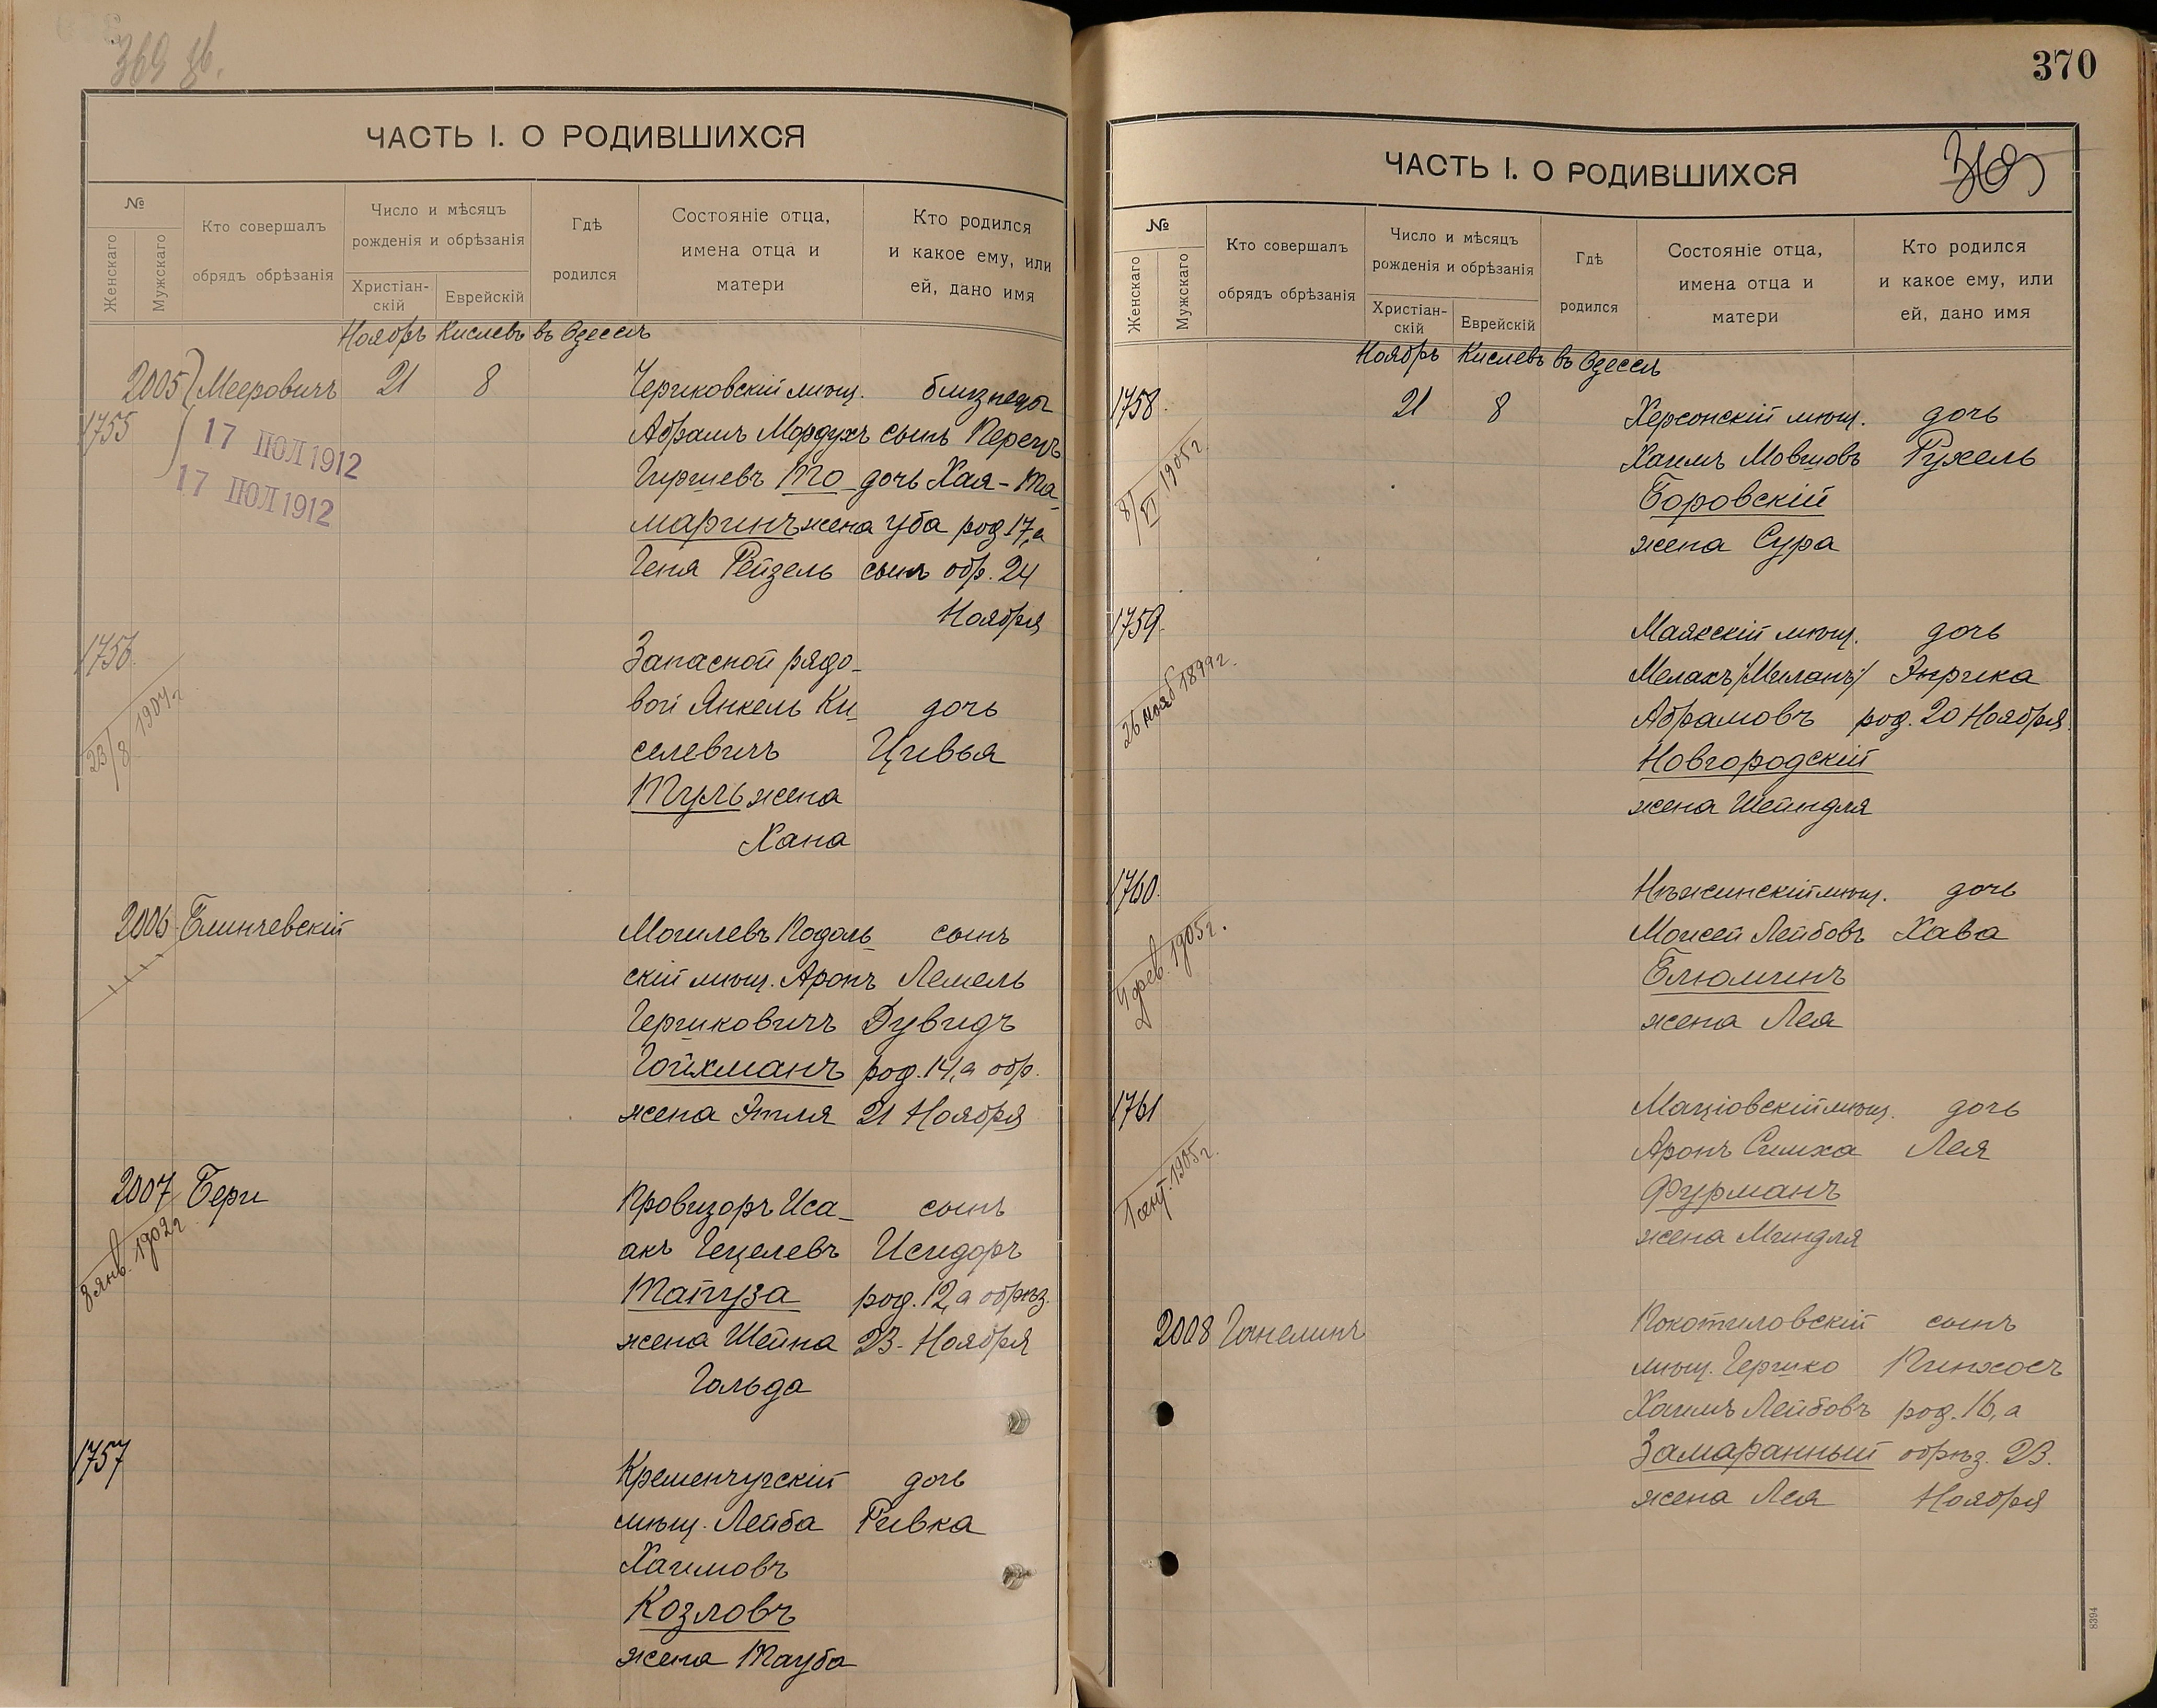 369 об.
ЧАСТЬ I. О РОДИВШИХСЯ
№
Женскаго
Мужскаго
Кто совершалъ
обрядъ обрѣзанія
Число и мѣсяцъ
рожденія и обрѣзанія
Христіан-
скій
Еврейскій
Гдѣ
родился
Состояніе отца,
имена отца и
матери
Кто родился
и какое ему, или
ей, дано имя
Ноябрь Кислевъ въ Одессѣ
2005 Мееровичъ 21 8 Чериковскій мѣщ. близнецы
1755 Абрамъ Мордухъ сынъ Перецъ
17 ПОЛ 1912
Гиршевъ То дочь Хая-Та
17 ПОЛ 1912
маринъ жена уба род 17, а
Геня Рейзель сынъ обр. 24
Ноября
1756. Запасной рядо-
23/8 1904 г
вой Янкель Ки дочь
селевичъ Цивья
Туль жена
Хана
2006 Блинчевскій Могилевъ Подоль сынъ
скій мѣщ. Аронъ Лемель
Гершковичъ Дувидъ
Гойхманъ род. 14, а обр.
жена Этля 21 Ноября
2007 Бери Провизоръ Иса- сынъ
8 янв. 1902 г
акъ Гецелевъ Исидоръ
Тапуза род. 12, а обрѣз.
жена Шейна 23 - Ноября
Гольда
1757 Кременчугскій дочь
мѣщ. Лейба Ривка
Хаимовъ
Козловъ
жена Тауба
370
ЧАСТЬ I. О РОДИВШИХСЯ
369
№
Женскаго
Мужскаго
Кто совершалъ
обрядъ обрѣзанія
Число и мѣсяцъ
рожденія и обрѣзанія
Христіан-
скій
Еврейскій
Гдѣ
родился
Состояніе отца,
имена отца и
матери
Кто родился
и какое ему, или
ей, дано имя
Ноябрь Кислевъ въ Одессѣ
1758. 21 8 Херсонскій мѣщ. дочь
8/VI 1905 г
Хаимъ Мовшовъ Рухель
Боровскій
жена Сура
1759. Маякскій мѣщ. дочь
26 нояб 1899 г.
Мелахъ /Миланъ/ Энрика
Абрамовъ род. 20 Ноября
Новгородскій
жена Шейндля
1760. Нѣжинскій мѣщ. дочь
4 фев. 1905 г.
Моисей Лейбовъ Хава
Блюминъ
жена Лея
1761 Маціовскій мѣщ. дочь
1 сент. 1905 г.
Аронъ Симха Лея
Фурманъ
жена Миндля
2008 Ганелинъ Покотиловскій сынъ
мѣщ. Гершко Пинхосъ
Хаимъ Лейбовъ род. 16, а
Замаранный обрѣз. 23.
жена Лея Ноября
8394